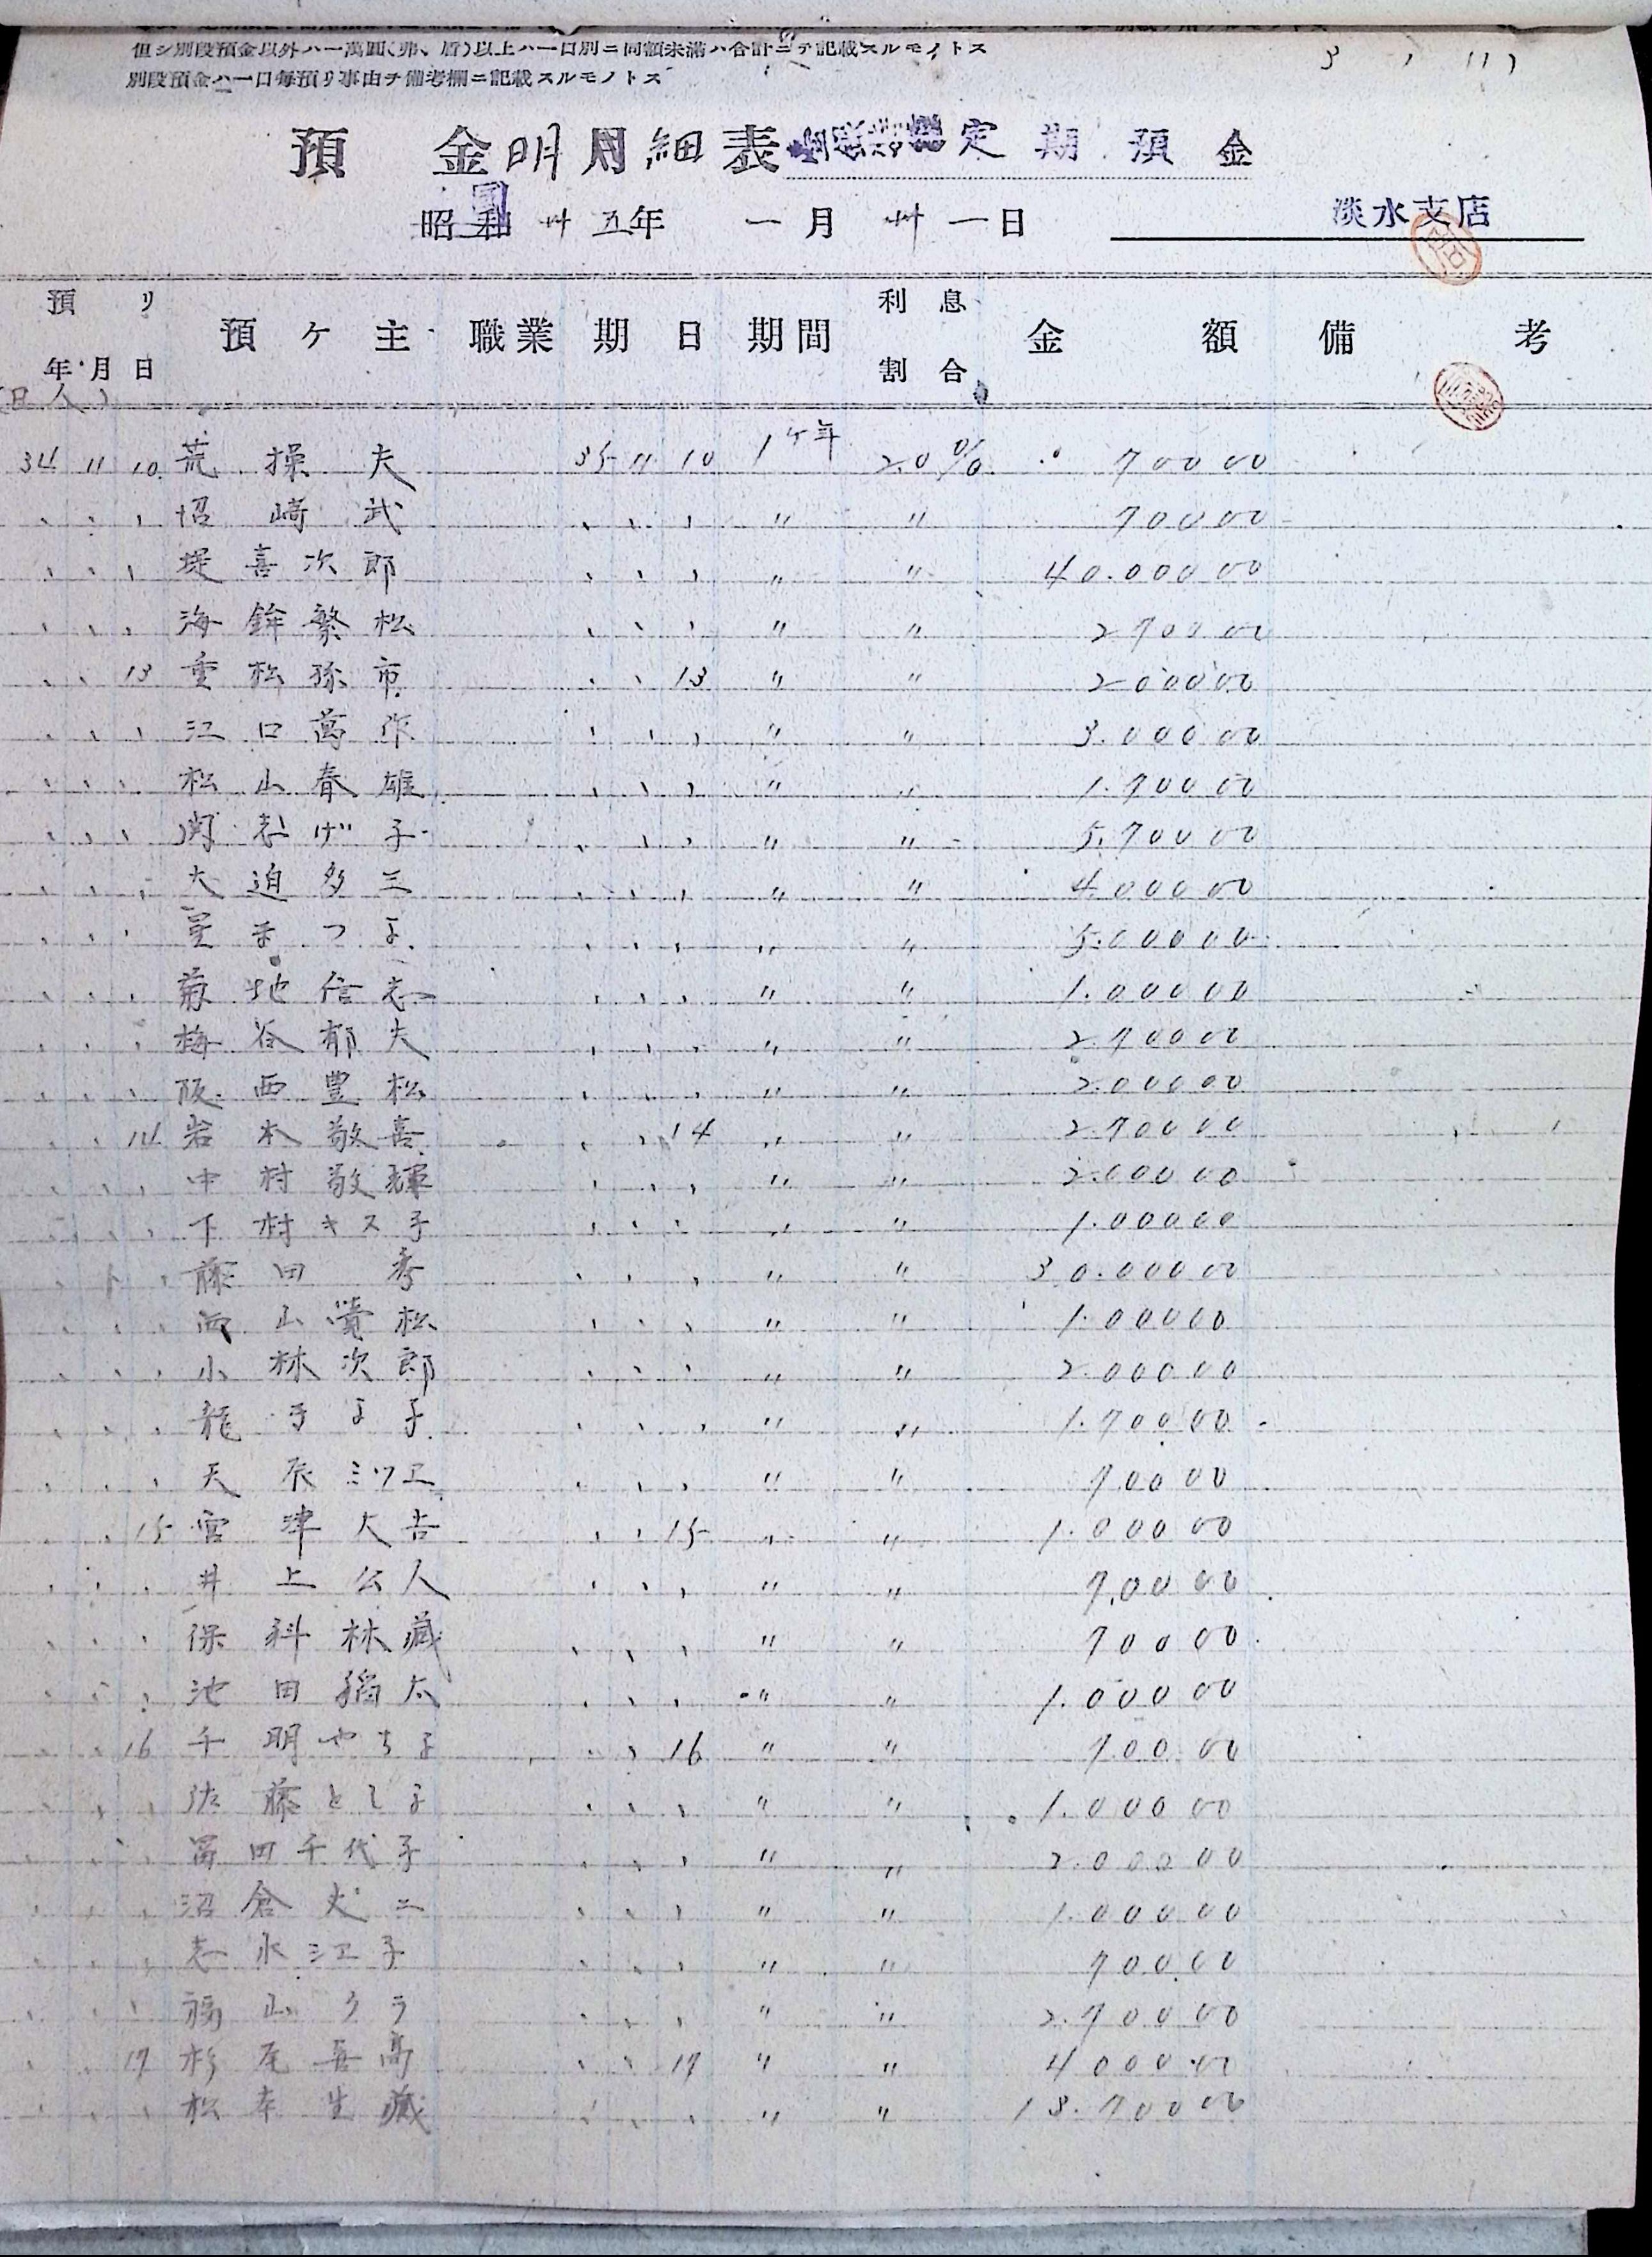 但シ別段預金以外ハ一萬圓(弗、磅)以上ハ一口別ニ同額未滿ハ合計ニテ記載スルモノトス
別段預金ハ一口每預リ事由ヲ備考欄ニ記載スルモノトス
預 金 明 細 表 定 期 預 金
昭和 卅五年 一月 卅一日 淡水支店
預リ年月日 預ケ主 職業 期日 期間 利息割合 金額 備考
(日人)
34 11 10 荒操夫 35 11 10 1ヶ年 2.0% 700 00
、 、 、 沼崎武 、 、 、 〃 〃 700 00
、 、 、 堤喜次郎 、 、 、 〃 〃 40.000 00
、 、 、 海鉾繁松 、 、 、 〃 〃 2700 00
、 、 13 重松孫市 、 、 13 〃 〃 2000 00
、 、 、 江口萬作 、 、 、 〃 〃 3.000 00
、 、 、 松山春雄 、 、 、 〃 〃 1.700 00
、 、 、 げ子 、 、 、 〃 〃 5.700 00
、 、 、 大迫多三 、 、 、 〃 〃 4.000 00
、 、 、 星まつよ 、 、 、 〃 〃 5.000 00
、 、 、 菊地信志 、 、 、 〃 〃 1.000 00
、 、 、 梅谷郁夫 、 、 、 〃 〃 2.700 00
、 、 、 阪西豊松 、 、 、 〃 〃 2.000 00
、 、 14 岩本敬喜 、 、 14 〃 〃 2.700 00
、 、 、 中村敬輝 、 、 、 〃 〃 2.000 00
、 、 、 下村キス子 、 、 、 〃 〃 1.000 00
、 、 、 藤田孝 、 、 、 〃 〃 30.000 00
、 、 、 山松 、 、 、 〃 〃 1.000 00
、 、 、 小林次郎 、 、 、 〃 〃 2.000 00
、 、 、 龍 、 、 、 〃 〃 1.700 00
、 、 、 天辰ミツエ 、 、 、 〃 〃 700 00
、 、 15 宮津大吉 、 、 15 〃 〃 1.000 00
、 、 、 井上公人 、 、 、 〃 〃 700 00
、 、 、 保科林藏 、 、 、 〃 〃 700 00
、 、 、 池田太 、 、 、 〃 〃 1.000 00
、 、 16 千明やちよ 、 、 16 〃 〃 700 00
、 、 、 佐藤としよ 、 、 、 〃 〃 1.000 00
、 、 、 冨田千代子 、 、 、 〃 〃 2.000 00
、 、 、 沼倉丈二 、 、 、 〃 〃 1.000 00
、 、 、 志水江子 、 、 、 〃 〃 700 00
、 、 、 福山クラ 、 、 、 〃 〃 2.700 00
、 、 17 杉尾喜高 、 、 17 〃 〃 4000 00
、 、 、 松本生藏 、 、 、 〃 〃 13.700 00